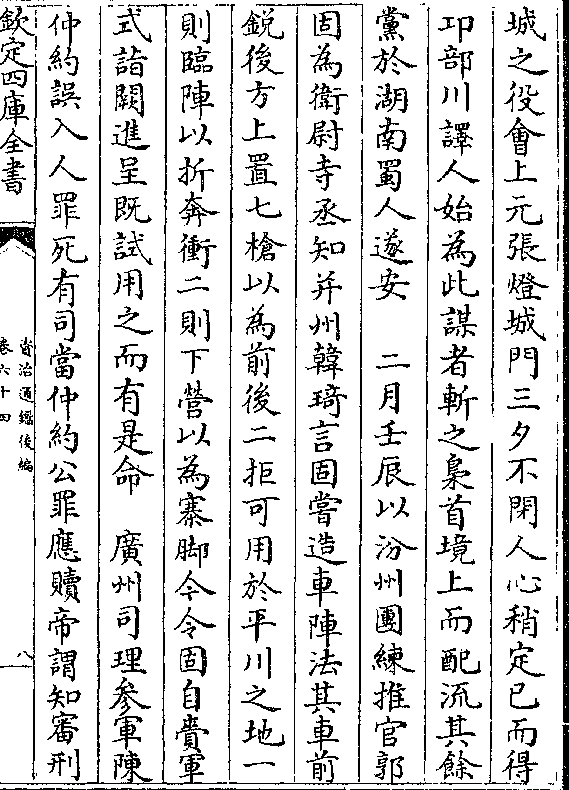 城之役會上元張燈城門三夕不閉人心稍定已而得
卭部川譯人始為此謀者斬之梟首境上而配流其餘
黨於湖南蜀人遂安　二月壬辰以汾州團練推官郭
固為衛尉寺丞知并州韓琦言固嘗造車陣法其車前
銳後方上置七槍以為前後二拒可用於平川之地一
則臨陣以折奔衝二則下營以為寨脚今令固自賫軍
式詣闕進呈既試用之而有是命　廣州司理參軍陳
仲約誤入人罪死有司當仲約公罪應贖帝謂知審刑
欽定四庫全書
資治通鑑後編
卷六十四
八